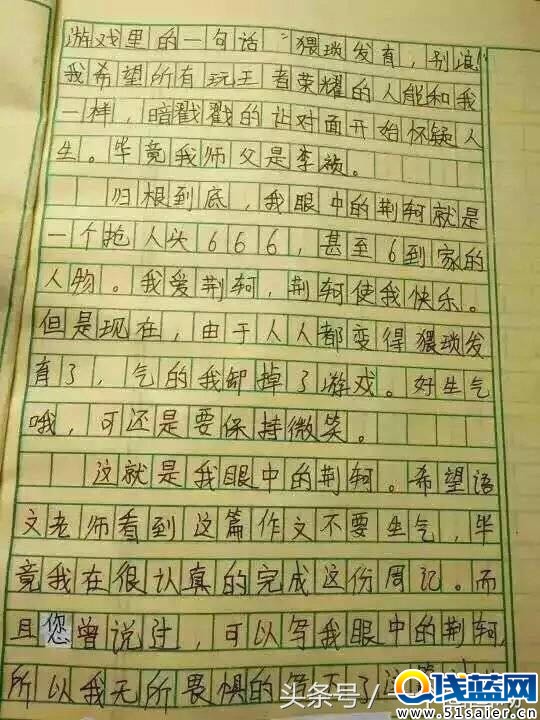 游戏里的一句话“猥琐发育，别浪！”
我希望所有玩王者荣耀的人能和我
一样，暗戳戳的让对面开始怀疑人
生。毕竟我师父是李祯。
归根到底，我眼中的荆轲就是
一个抢人头666，甚至6到家的
人物。我爱荆轲，荆轲使我快乐。
但是现在，由于人人都变得猥琐发
育了，气的我卸掉了游戏。好生气
哦，可还是要保持微笑。
这就是我眼中的荆轲。希望语
文老师看到这篇作文不要生气，毕
竟我在很认真的完成这份周记。而
且您曾说过，可以写我眼中的荆轲，
所以我无所畏惧的写下了这篇
头条号
线蓝网
www.51saier.cn